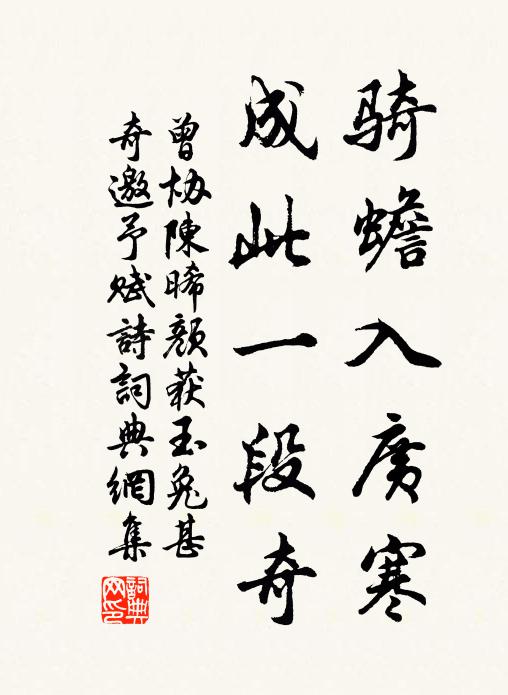 骑蟾入广寒
成此一段奇
曾协陳晞颜获玉兔甚
奇邀予赋詩詞典網集
詞典
网印